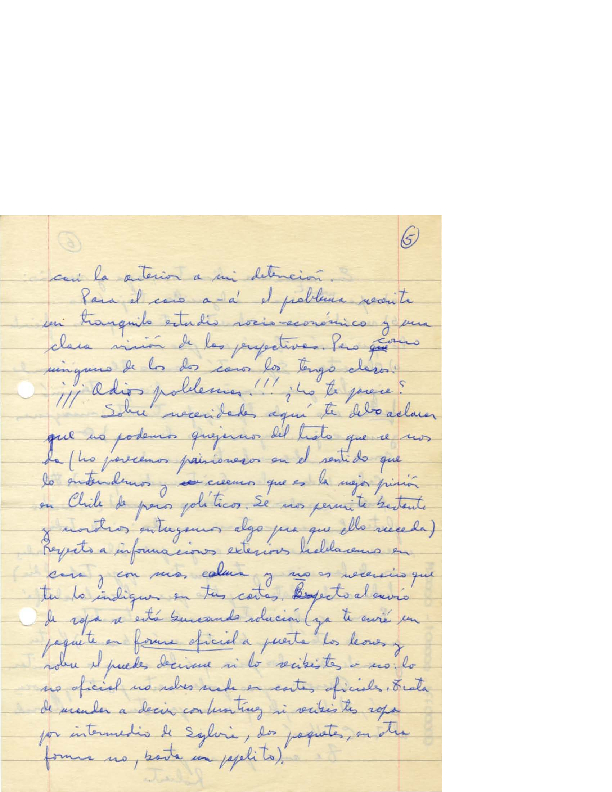 5
casi la anterior a mi detención.
Para el caso a-á el problema necesita
un tranquilo estudio socio-económico y una
clara visión de las perspectivas. Pero como
ninguno de los dos casos los tengo claros:
¡¡¡ Odios problemas!!! ¿No te parece?
Sobre necesidades aquí te debo aclarar
que no podemos quejarnos del trato que se nos
da (no parecemos prisioneros en el sentido que
lo entendemos y creemos que es la mejor prisión
en Chile de presos políticos. Se nos permite bastante
y nosotros entregamos algo para que ello suceda)
Respecto a informaciones exteriores hablaremos en
casa y con más calma y no es necesario que
tu lo indiques en tus cartas. Respecto al envío
de ropa se está buscando solución (ya te envié un
paquete en forma oficial a puerta los leones y
sobre el puedes decirme si lo recibistes o no: lo
no oficial no sabes nada en cartas oficiales. Trata
de mandar a decir con si recibistes ropa
por intermedio de Sylvia, dos paquetes, en otra
forma no, basta un papelito).